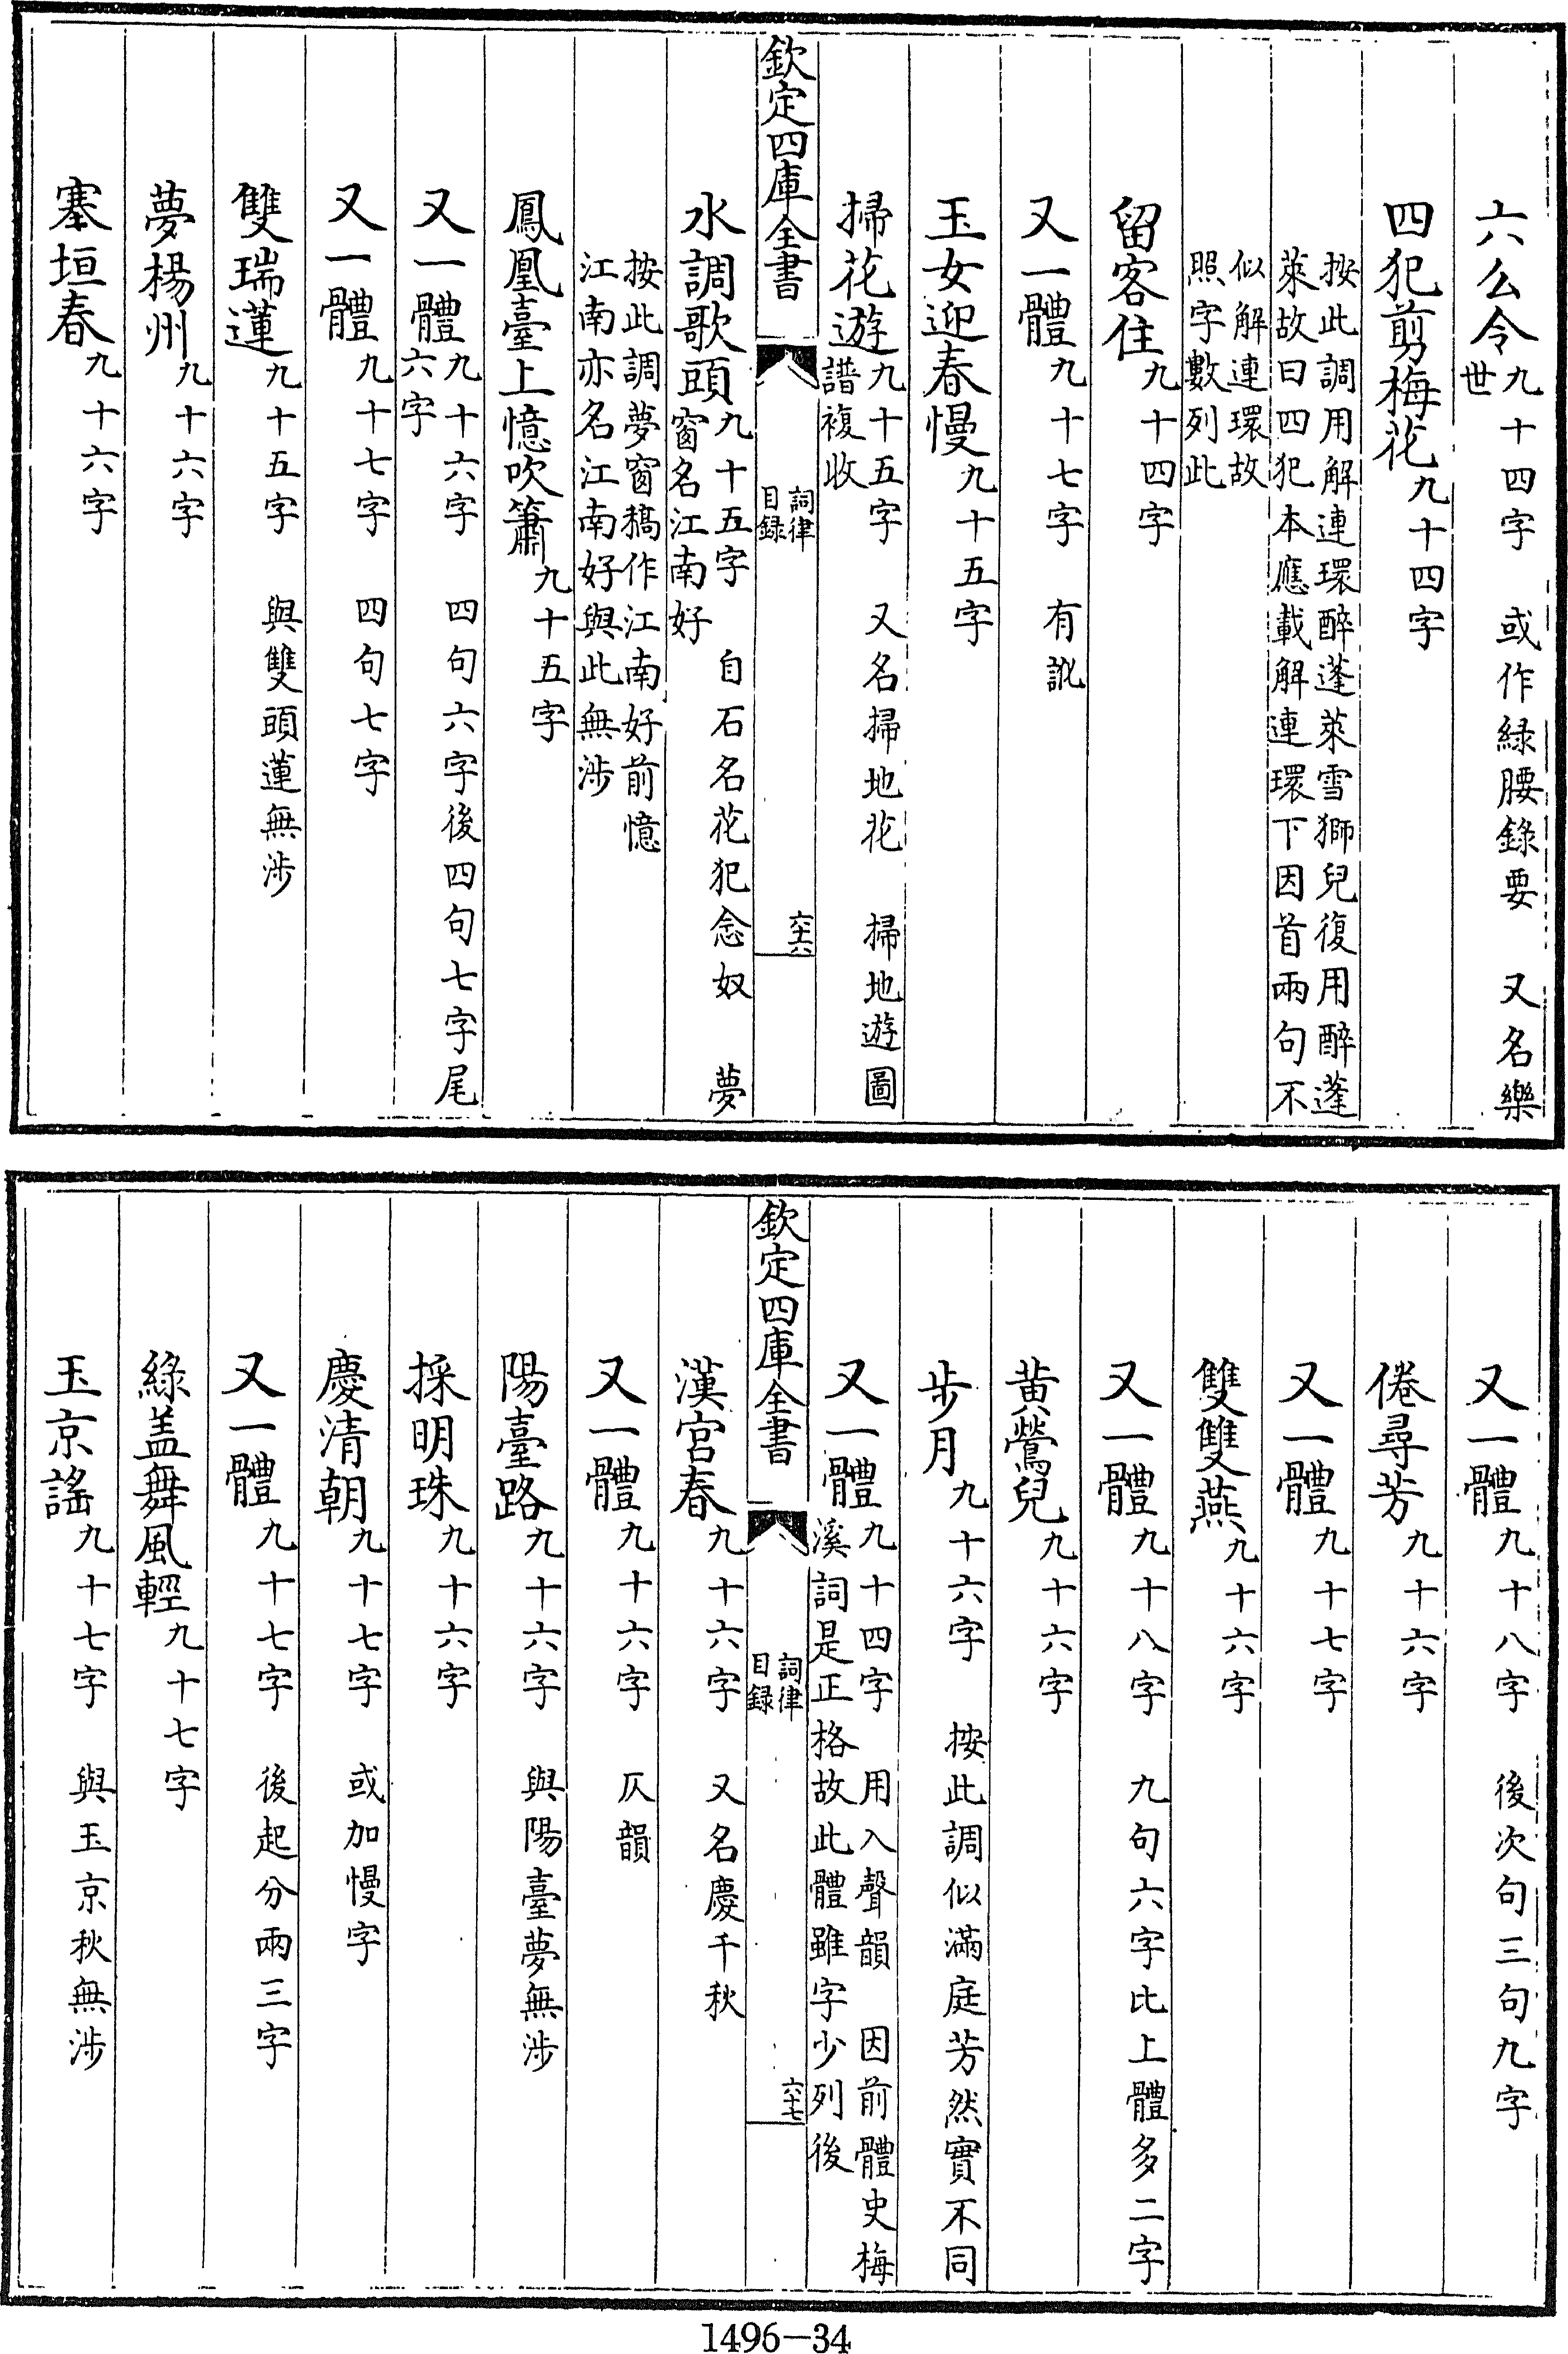 六么令九十四字　或作緑腰錄要　又名樂
世
四犯剪梅花九十四字
按此調用解連環醉蓬萊雪獅兒復用醉蓬
萊故曰四犯本應載解連環下因首兩句不
似解連環故
照字數列此
留客住九十四字
又一體九十七字　有訛
玉女迎春慢九十五字
掃花遊九十五字　又名掃地花　掃地遊圖
譜複收
欽定四庫全書
詞律
目録
六十六
水調歌頭九十五字　自石名花犯念奴　夢
窗名江南好
按此調夢窗稿作江南好前憶
江南亦名江南好與此無涉
鳳凰臺上憶吹簫九十五字
又一體九十六字　四句六字後四句七字尾
六字
又一體九十七字　四句七字
雙瑞蓮九十五字　與雙頭蓮無涉
夢楊州九十六字
塞垣春九十六字
又一體九十八字　後次句三句九字
倦尋芳九十六字
又一體九十七字
雙雙燕九十六字
又一體九十八字　九句六字比上體多二字
黄鶯兒九十六字
步月九十六字　按此調似滿庭芳然實不同
又一體九十四字　用入聲韻　因前體史梅
溪詞是正格故此體雖字少列後
欽定四庫全書
詞律
目録
六十七
漢宮春九十六字　又名慶千秋
又一體九十六字　仄韻
陽臺路九十六字　與陽臺夢無涉
採明珠九十六字
慶清朝九十七字　或加慢字
又一體九十七字　後起分兩三字
綠盖舞風輕九十七字
玉京謠九十七字　與玉京秋無涉
1496-34